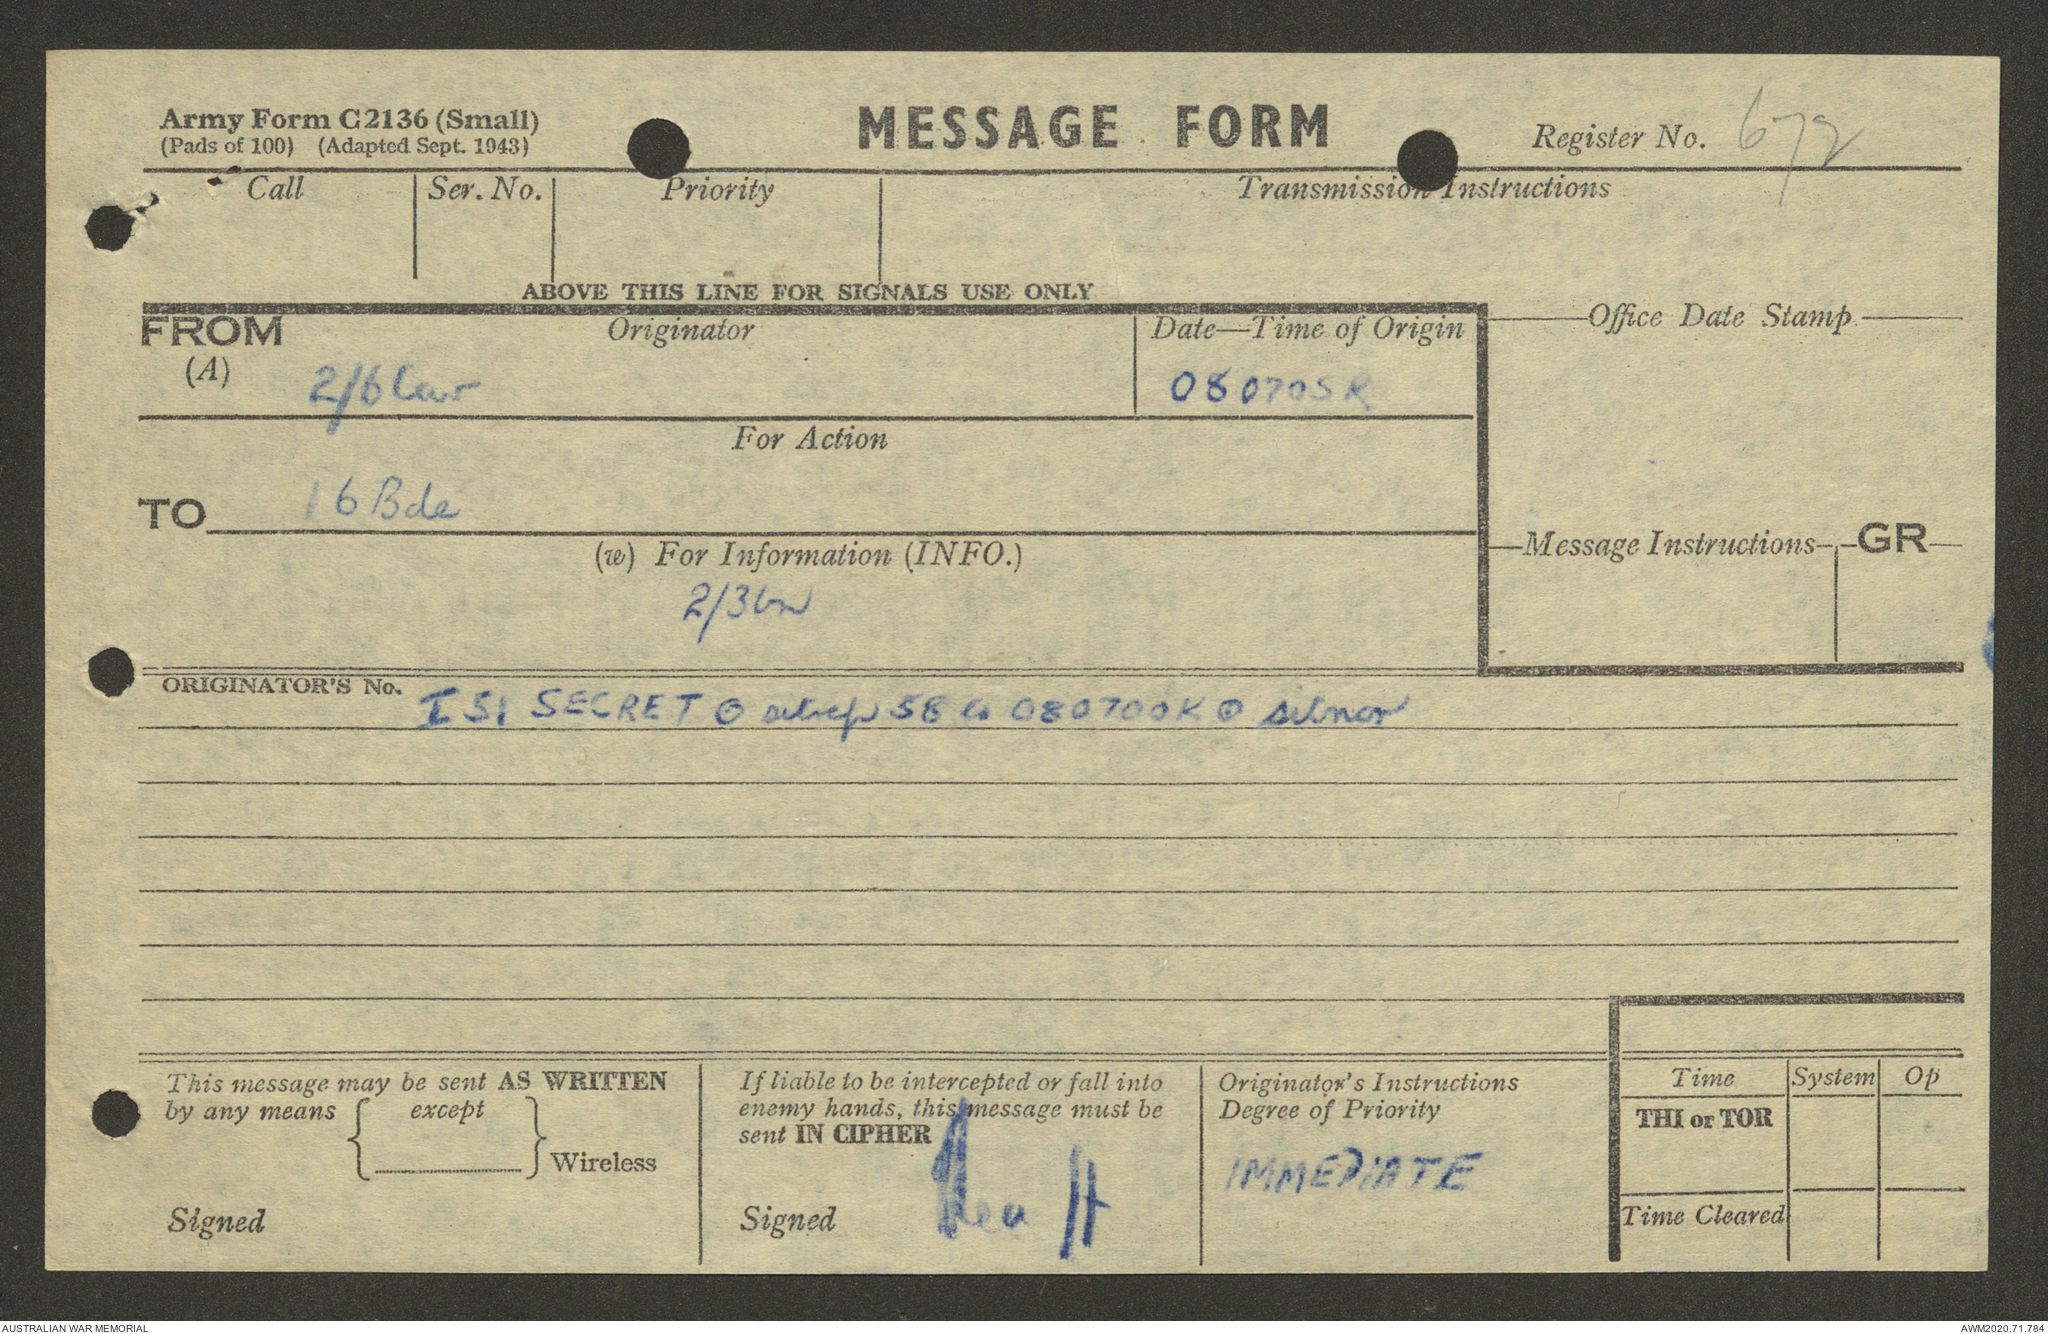 Army Form C2136 (Small)
(Pads of 100) (Adapted Sept. 1943)
MESSAGE FORM
Register No. 672
Call
Ser. No.
Priority
Transmission Instructions
ABOVE THIS LINE FOR SIGNALS USE ONLY
FROM
(A)
Originator
2/6 Cav
Date—Time of Origin
080705K
Office Date Stamp
For Action
TO
16 Bde
(w) For Information (INFO.)
2/3 bn
Message Instructions
GR
ORIGINATOR'S No.
I 51 SECRET ⊙ sitrep 58 to 080700K ⊙ sitnor
This message may be sent AS WRITTEN
by any means { except } Wireless
Signed
If liable to be intercepted or fall into
enemy hands, this message must be
sent IN CIPHER
Signed
Originator's Instructions
Degree of Priority
IMMEDIATE
Time
System
Op
THI or TOR
Time Cleared
AUSTRALIAN WAR MEMORIAL
AWM2020.71.784